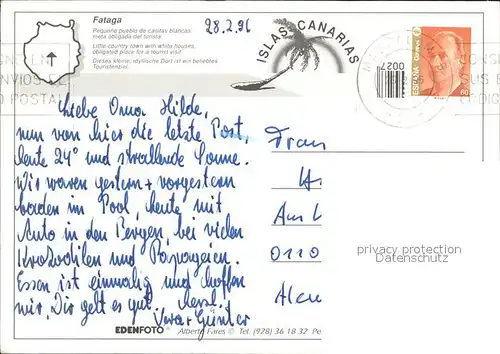 Fataga
Pequeño pueblo de casitas blancas,
meta obligada del turista.
Little country town with white houses,
obligated place for a tourist visit
Dieses kleine, idyllische Dorf ist ein beliebtes
Touristenziel.
28.2.96
ISLAS CANARIAS
7200
ESPAÑA
Correos
60
Liebe Oma Hilde,
nun von hier die letzte Post,
heute 24° und strallende Sonne.
Wir waren gestern + vorgestern
baden im Pool, heute mit
Auto in den Bergen, bei vielen
Krokodilen und Papageien.
Essen ist einmalig und hoffen
wir, Dir geht es gut. Herzl.
Vera + Günter
Frau
H.
Am
0110
privacy protection
Datenschutz
EDENFOTO
Alberto Fares © Tel. (928) 36 18 32